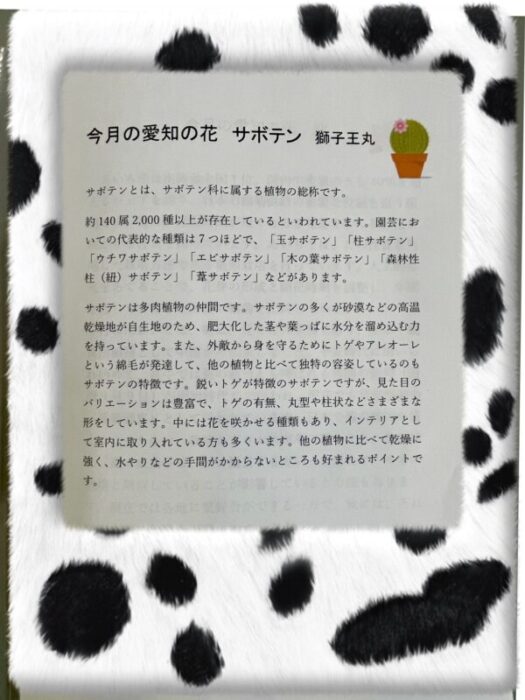 今月の愛知の花 サボテン 獅子王丸
サボテンとは、サボテン科に属する植物の総称です。
約140属2,000種以上が存在しているといわれています。園芸にお
いての代表的な種類は7つほどで、「玉サボテン」「柱サボテン」
「ウチワサボテン」「エビサボテン」「木の葉サボテン」「森林性
柱（紐）サボテン」「葦サボテン」などがあります。
サボテンは多肉植物の仲間です。サボテンの多くが砂漠などの高温
乾燥地が自生地のため、肥大化した茎や葉っぱに水分を溜め込む力
を持っています。また、外敵から身を守るためにトゲやアレオーレ
という綿毛が発達して、他の植物と比べて独特の容姿しているのも
サボテンの特徴です。鋭いトゲが特徴のサボテンですが、見た目の
バリエーションは豊富で、トゲの有無、丸型や柱状などさまざまな
形をしています。中には花を咲かせる種類もあり、インテリアとし
て室内に取り入れている方も多くいます。他の植物に比べて乾燥に
強く、水やりなどの手間がかからないところも好まれるポイントで
す。